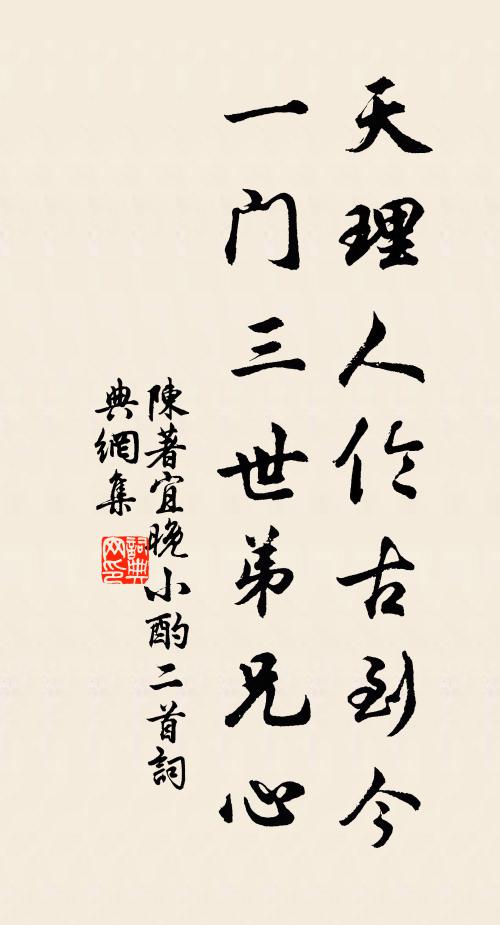 天理人伦古到今
一门三世弟兄心
陳著宜晚小酌二首詞
典網集
詞典网印